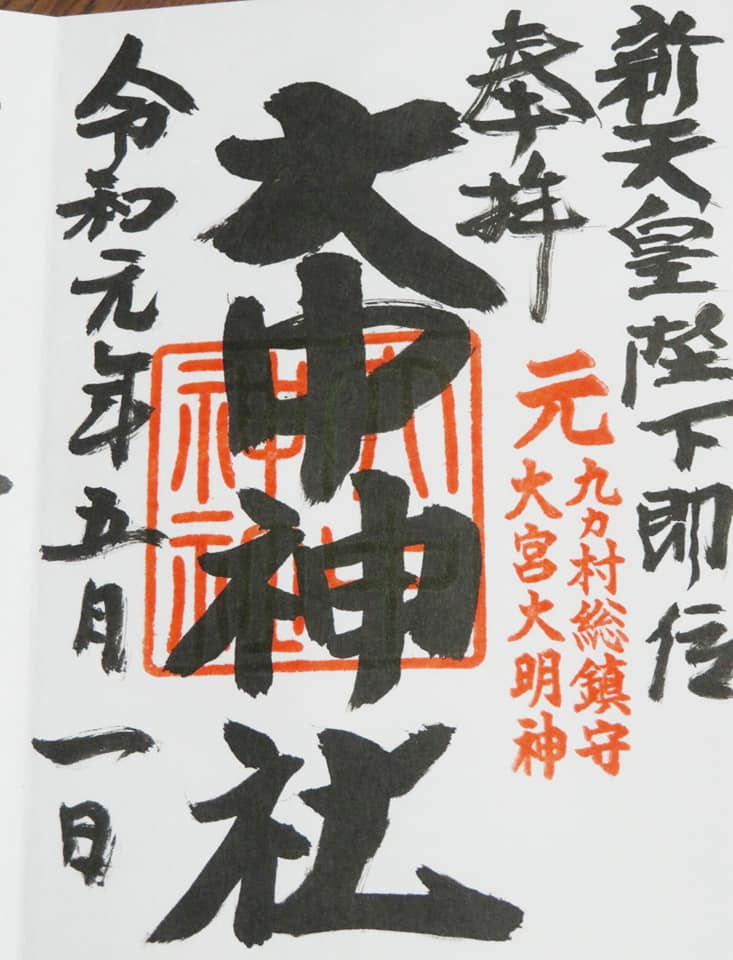 新天皇陛下即位
奉拝
元
九カ村総鎮守
大宮大明神
大中神社
令和元年五月一日